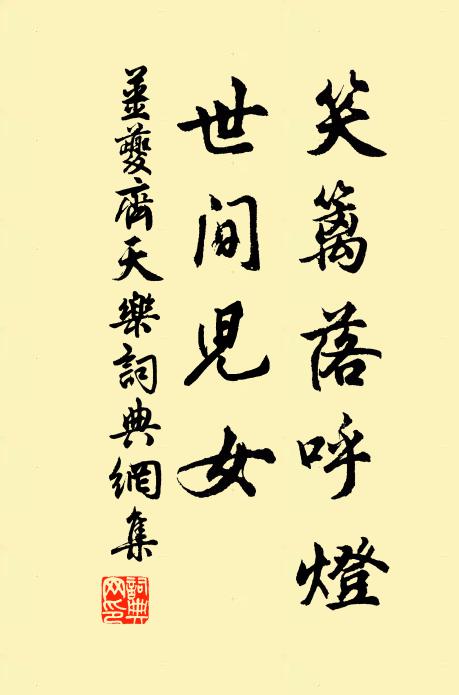 笑篱落呼燈
世间兒女
姜夔齊天樂詞典網集
詞典网印